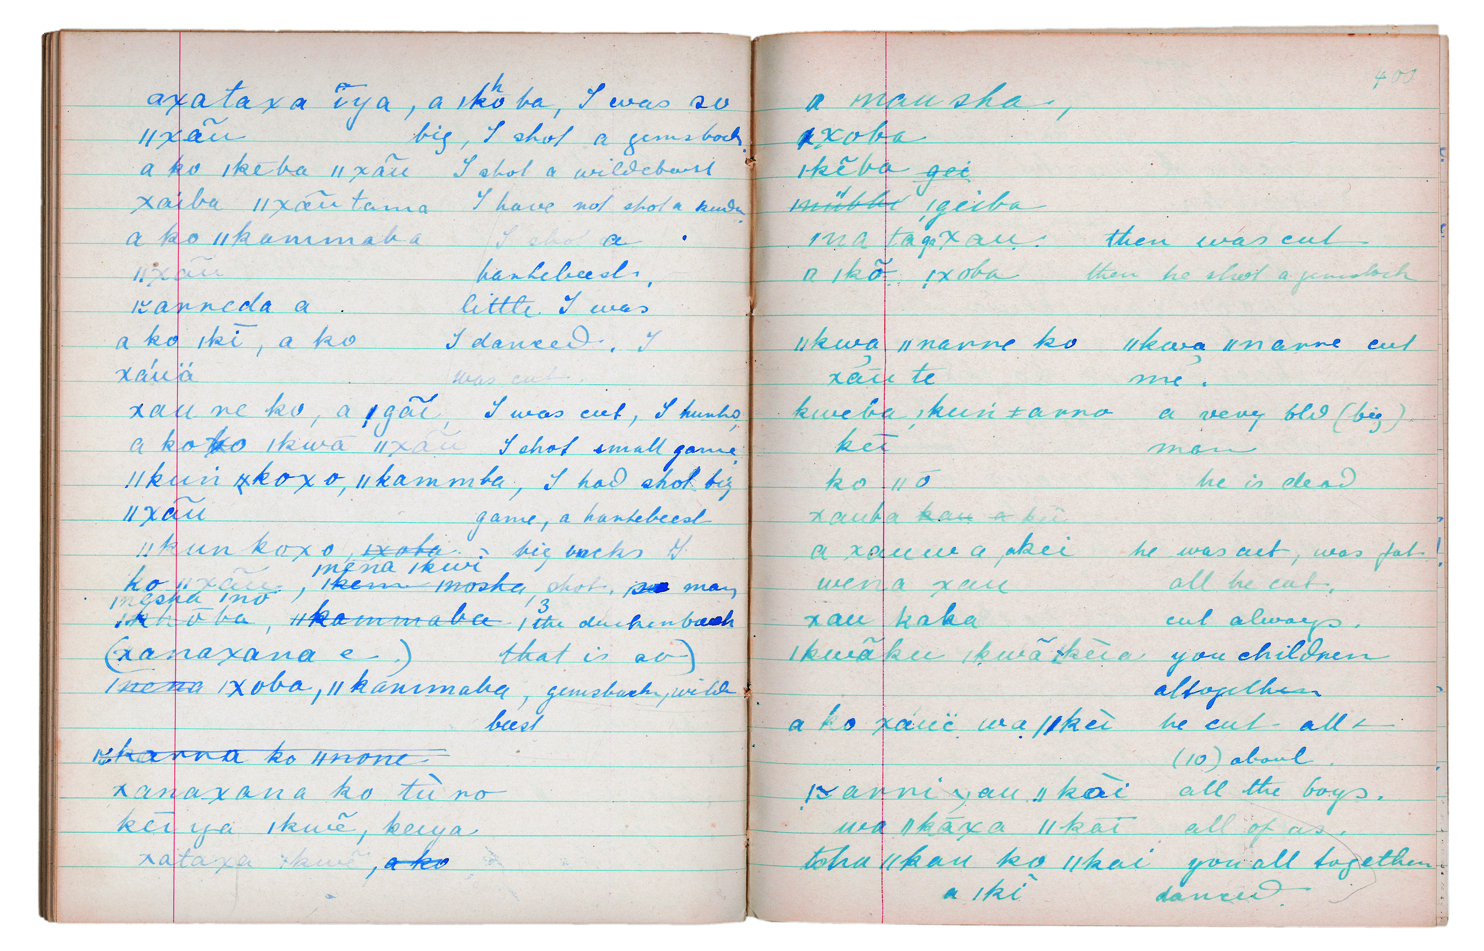 axataxa ĩya, a ǀkhõba, I was so
ǁxãu big, I shot a gemsbock.
a ko ǀkeba ǁxãu I shot a wildebeest
xaiba ǁxãu tama I have not shot a kudu
a ko ǁkammaba I shot a
ǁxãu hartebeest.
arreda a little I was
a ko ǀkĩ, a ko I danced. I
xáuä was cut
xau re ko, a ǀgãĩ I was cut, I hunted
a ko ǀkwã ǁxãu I shot small game,
ǁkuri koxo, ǁkammba, I had shot big
ǁxãu game, a hartebeest
ǁkun koxo, ǀxoba big bucks I
mena ǀkwi
ko ǁxãu, shot. many
ǀnosha ǀno
ǀkhõba, ǁkammaba the duikerbuck
(xanaxana e.) that is so)
ǀnena ǀxoba, ǁkammaba, gemsbuck, wilde
beest
karra ko ǁnone
xanaxana ko tù ro
kẽi ya ǀkwẽ, keiya
xataxa ǀkwẽ, a ko
400
a mansha,
ǀxoba
ǀkẽba gei
ǀgeiba
ǀna ta xau. then was cut
a ǀkõ ǀxoba then he shot a gemsbock
ǁkwa ǁnarre ko ǁkwa ǁnarre cut
xãu te me.
kweba ǀkuń ǂarro a very old (big)
kei man
ko ǁõ he is dead
xauba
a xauwa, kei he was cut, was fat
wena xau all he cut.
xau kaka cut always.
ǀkwãku ǀkwã kẽia you children
altogether
a ko xáuï wa ǁkèi he cut all
(10) about.
arri xau ǁkài all the boys.
wa ǁkãxa ǁkai all of us.
tsha ǁkau ko ǁkai you all together
a ǀkì danced.